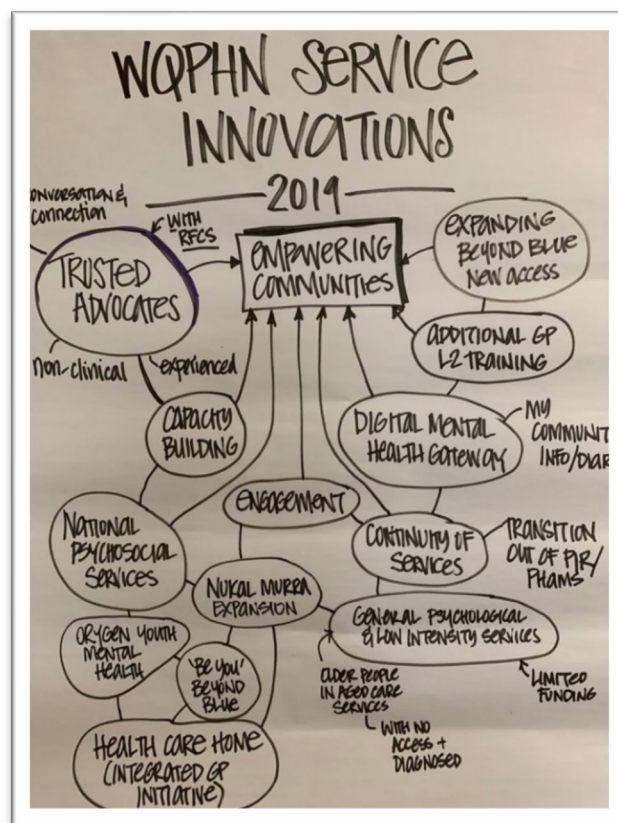 WQPHN SERVICE
INNOVATIONS
2019
ONVERSATION &
connection
WITH
RFCS
TRUSTED
ADVOCATES
non-clinical
experienced
EMPOWERING
COMMUNITIES
EXPANDING
BEYOND BLUE
NEW ACCESS
ADDITIONAL GP
L2 TRAINING
CAPACITY
BUILDING
DIGITAL MENTAL
HEALTH GATEWAY
MY
COMMUNIT
INFO/DIAR
ENGAGEMENT
NATIONAL
PSYCHOSOCIAL
SERVICES
CONTINUITY OF
SERVICES
TRANSITION
OUT OF PIR/
PHAMS
NUKAL MURRA
EXPANSION
GENERAL PSYCHOLOGICAL
& LOW INTENSITY SERVICES
ORYGEN YOUTH
MENTAL
HEALTH
'BE YOU'
BEYOND
BLUE
OLDER PEOPLE
IN AGED CARE
SERVICES
WITH NO
ACCESS +
DIAGNOSED
LIMITED
FUNDING
HEALTH CARE HOME
(INTEGRATED GP
INITIATIVE)